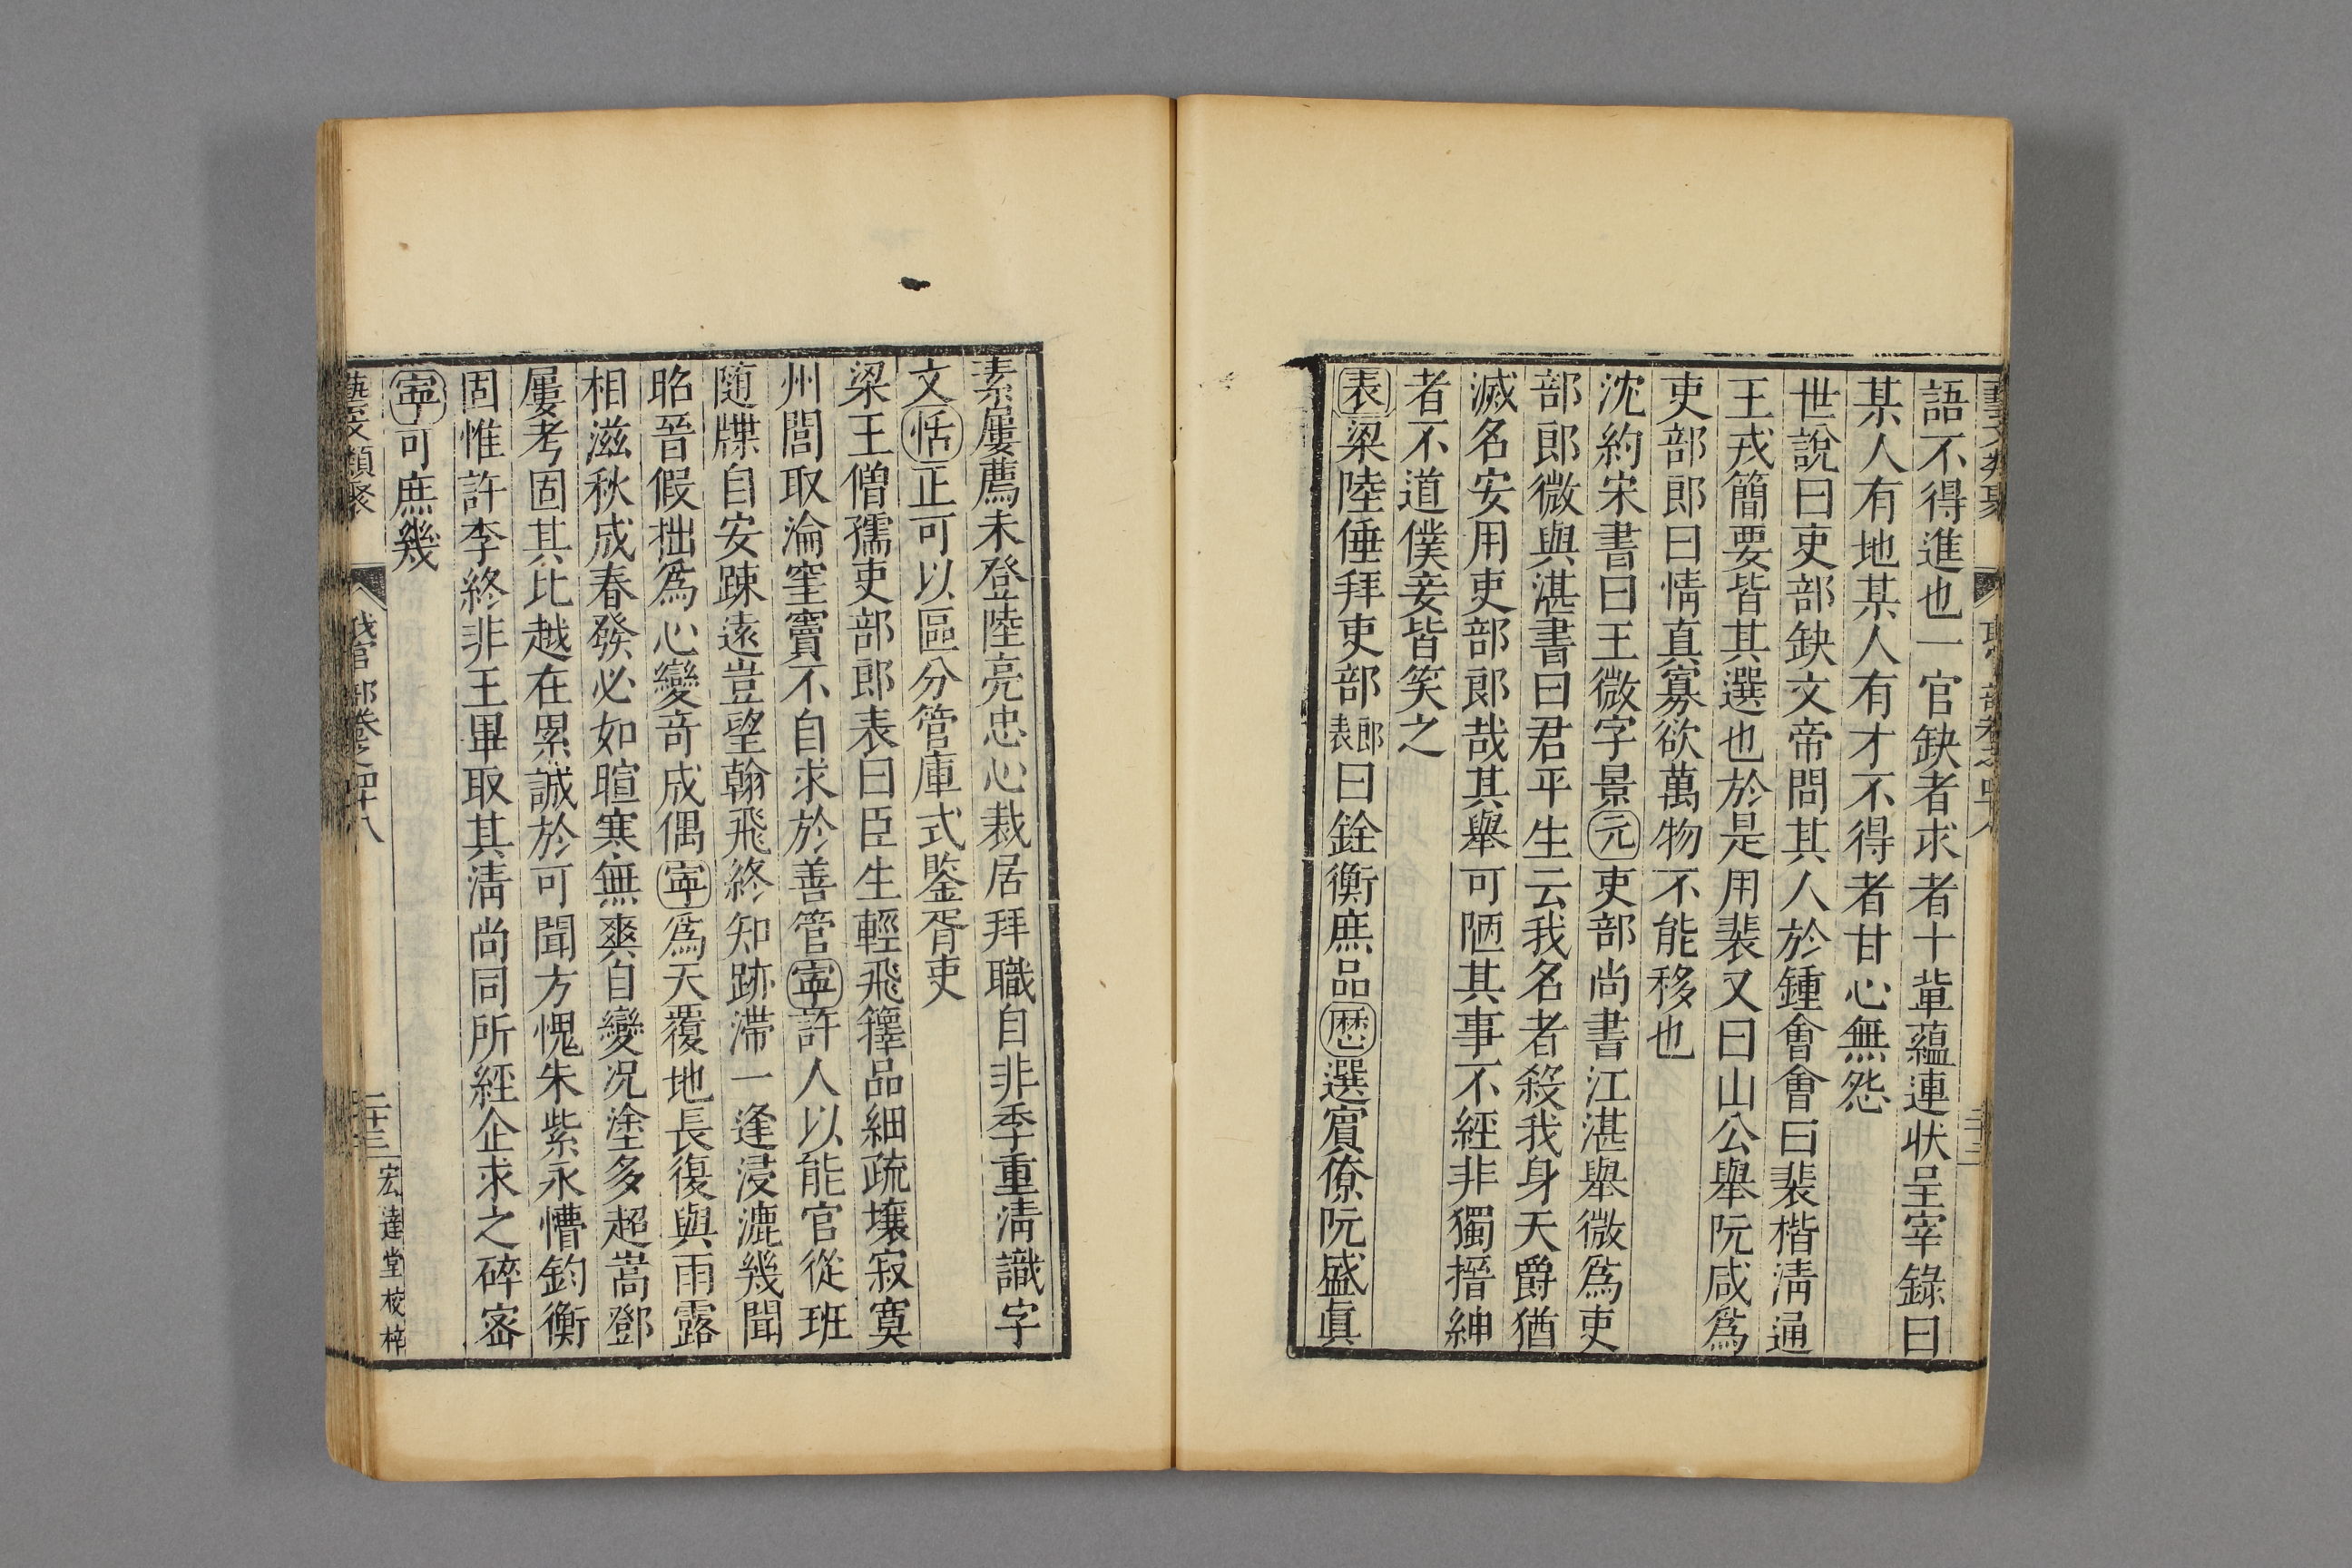 語不得進也一官缺者求者十輩蘊連状呈宰錄曰
某人有地某人有才不得者甘心無怨
世說曰吏部缺文帝問其人於鍾會會曰裴楷淸通
王戎簡要皆其選也於是用裴又曰山公舉阮咸爲
吏部郎曰情真寡欲萬物不能移也
沈約宋書曰王微字景元吏部尚書江湛舉微爲吏
部郎微與湛書曰君平生云我名者殺我身天爵猶
滅名安用吏部郎哉其舉可陋其事不經非獨搢紳
者不道僕妾皆笑之
表梁陸倕拜吏部郎表曰銓衡庶品歷選賔僚阮盛眞
素屢薦未登陸亮忠心裁居拜職自非季重淸識字
文恬正可以區分管庫式鑒胥吏
梁王僧孺吏部郎表曰臣生輕飛籜品細疏壤寂寞
州閭取淪窐竇不自求於善管寧許人以能官從班
随牒自安踈遠豈望翰飛終知跡滯一逢浸漉幾聞
昭晉假拙爲心變竒成偶寧爲天覆地長復與雨露
相滋秋成春發必如暄寒無爽自變况塗多超嵩鄧
屢考固其比越在累誠於可聞方愧朱紫永懵鈞衡
固惟許李終非王畢取其淸尚同所經企求之碎宻
寧可庶幾
藝文類聚 職官部卷之四十八 二十三 宏達堂校梓